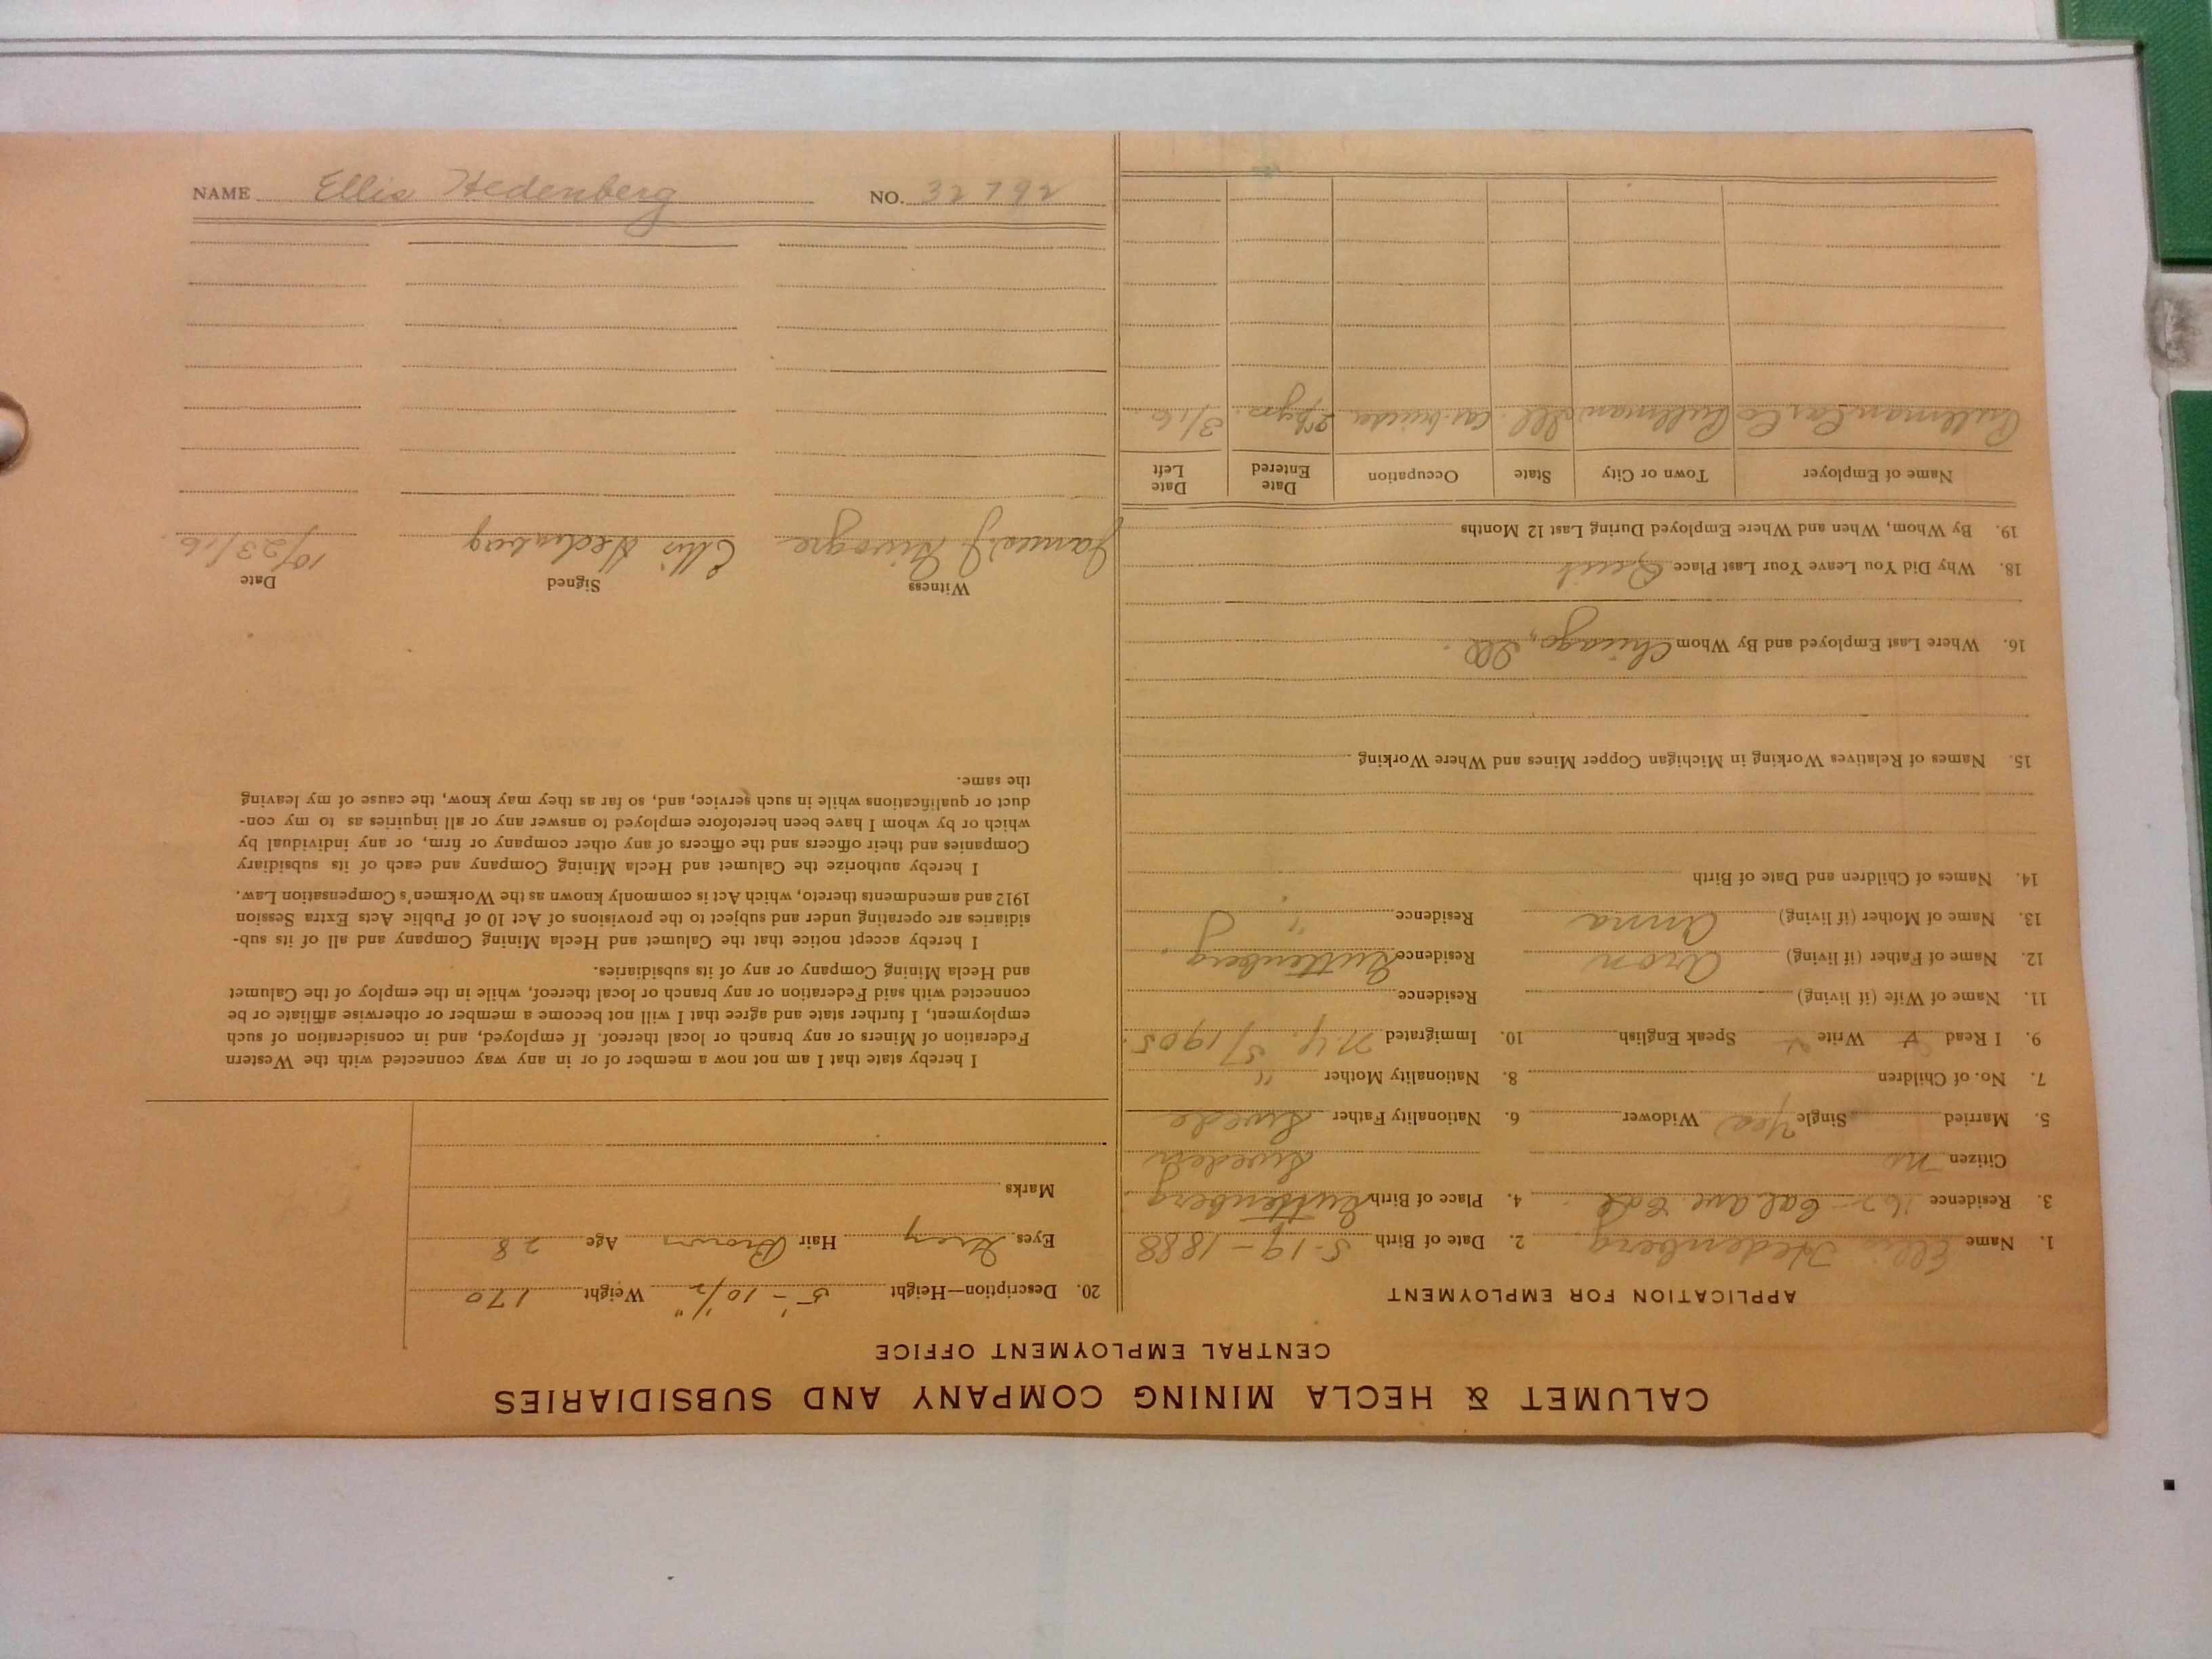 CALUMET & HECLA MINING COMPANY AND SUBSIDIARIES
CENTRAL EMPLOYMENT OFFICE
APPLICATION FOR EMPLOYMENT
1. Name Ellis Hedenberg 2. Date of Birth 5-19-1888
3. Residence Cal ave. 4. Place of Birth Guttenberg
Citizen no Sweden
5. Married Single Yes Widower 6. Nationality Father Swede
7. No. of Children 8. Nationality Mother "
9. I Read Write Speak English 10. Immigrated N.Y. 5/1905
11. Name of Wife (if living) Residence
12. Name of Father (if living) Aron Residence Guttenberg
13. Name of Mother (if living) Anna Residence "
14. Names of Children and Date of Birth
15. Names of Relatives Working in Michigan Copper Mines and Where Working
16. Where Last Employed and By Whom Chicago, Ill.
18. Why Did You Leave Your Last Place Quit
19. By Whom, When and Where Employed During Last 12 Months
Name of Employer Town or City State Occupation Date Entered Date Left
Pullman Car Co Pullman Ill. yrs. 3/16
20. Description—Height 5'-10 1/2" Weight 170
Eyes Grey Hair Brown Age 28
Marks
I hereby state that I am not now a member of or in any way connected with the Western
Federation of Miners or any branch or local thereof. If employed, and in consideration of such
employment, I further state and agree that I will not become a member or otherwise affiliate or be
connected with said Federation or any branch or local thereof, while in the employ of the Calumet
and Hecla Mining Company or any of its subsidiaries.
I hereby accept notice that the Calumet and Hecla Mining Company and all of its sub-
sidiaries are operating under and subject to the provisions of Act 10 of Public Acts Extra Session
1912 and amendments thereto, which Act is commonly known as the Workmen's Compensation Law.
I hereby authorize the Calumet and Hecla Mining Company and each of its subsidiary
Companies and their officers and the officers of any other company or firm, or any individual by
which or by whom I have been heretofore employed to answer any or all inquiries as to my con-
duct or qualifications while in such service, and, so far as they may know, the cause of my leaving
the same.
Witness Signed Date
James J Ellis Hedenberg 10/23/16
NAME Ellis Hedenberg NO. 32792